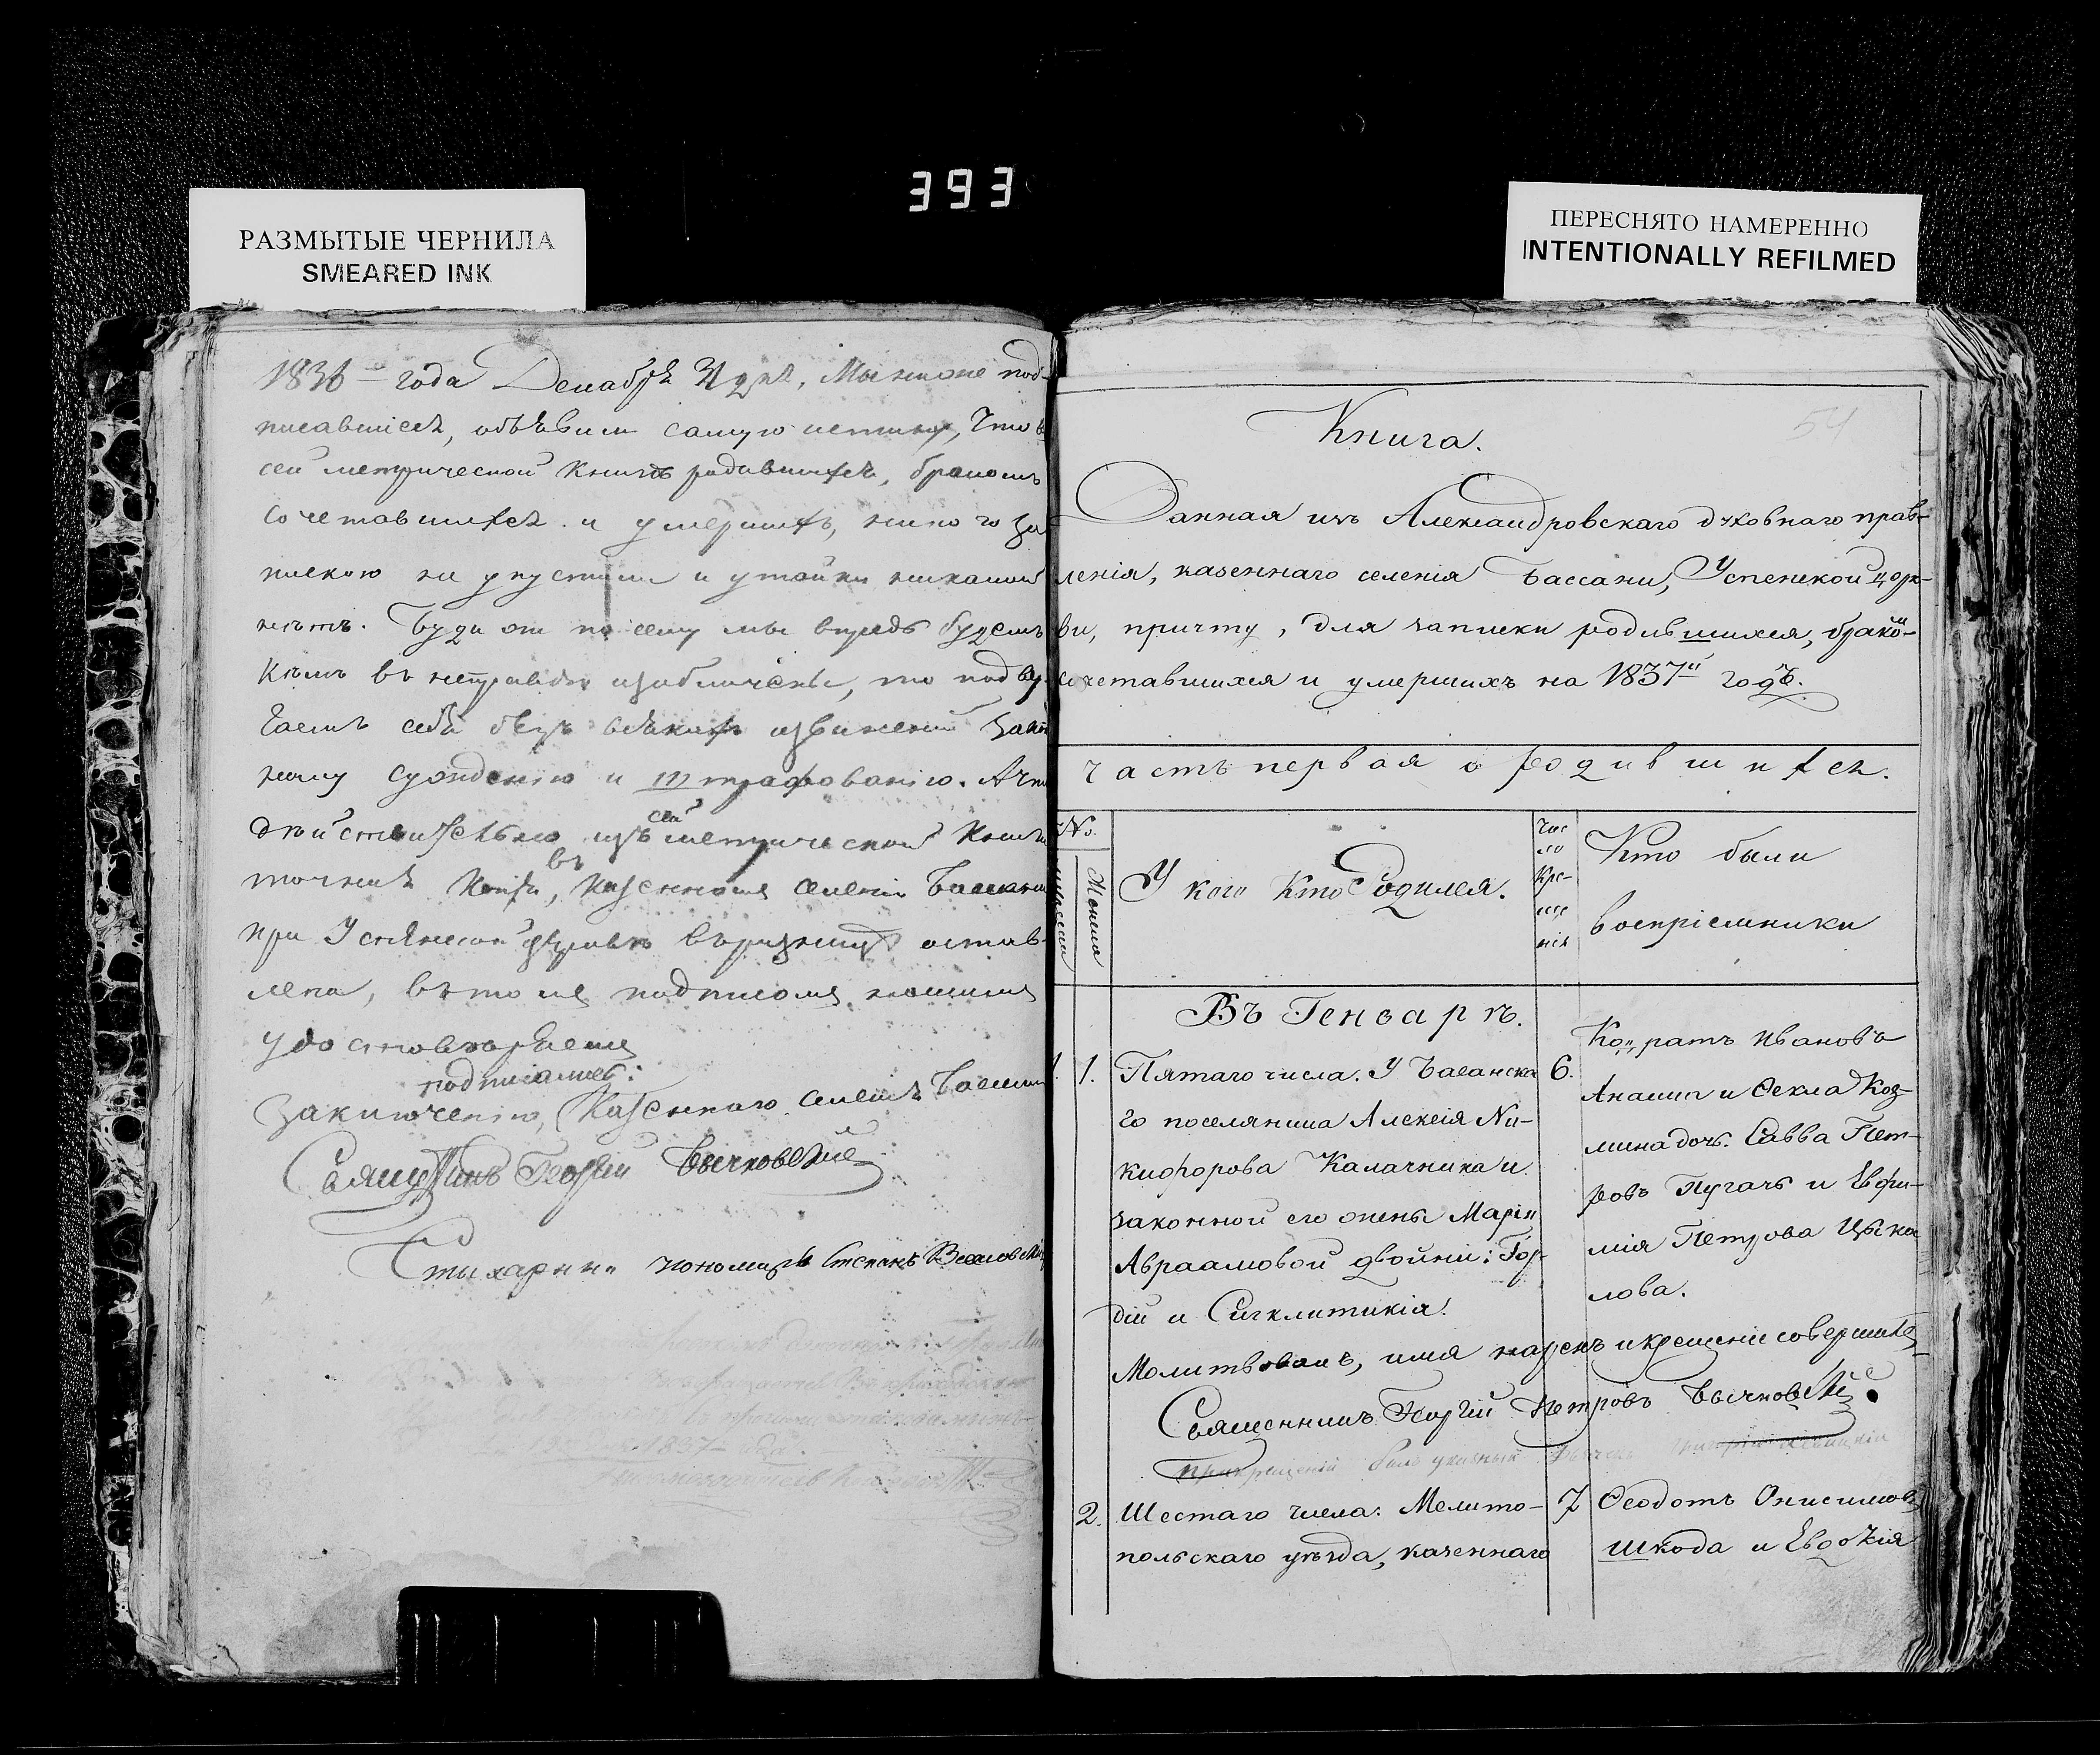 393
РАЗМЫТЫЕ ЧЕРНИЛА
SMEARED INK
ПЕРЕСНЯТО НАМЕРЕННО
INTENTIONALLY REFILMED
1836 года Декабря 31 дня, Мы ниже под-
писавшіеся, объявили самую истину, Что в
сей метрической Книгѣ родившихся, бракомъ
сочетавшихся и умершихъ, никого за
пискою не упустили и утайки никакой
нѣтъ. Буди же по сему мы впредь будемъ
Кѣмъ въ неправдѣ изобличены, то подвер
гаемъ себя безъ всякихъ извиненій закон
ному сужденію и штрафованію. А что
дѣйствительно изъ сей метрической Книги
точная Копія, въ Казенномъ селеніи Бассани
при Успенской церквѣ въ ризницѣ остав-
лена, въ томъ подписомъ нашимъ
удостовѣряемъ
подписались:
Заключенію, Казеннаго селенія Бассани
Священникъ Георгій Бычковскій
Стихарный пономарь Степанъ
1837
54
Книга.
Данная изъ Александровскаго духовнаго прав-
ленія, казеннаго селенія Бассани, Успенской цер-
кви, причту, для записки родившихся, брако-
сочетавшихся и умершихъ на 1837й годъ.
Часть первая о родившихся.
№.
Женска
У кого Кто Родился.
Чис
ло
Кре-
ще
нія
Кто были
воспріемники
Въ Генварѣ.
1. 1. Пятаго числа. У Басанска
го поселянина Алексія Ни-
кифорова Калачника и
законной его жены Маріи
Авраамовой двойни: Гор-
дій и Сигклитикія.
6.
Кодратъ Ивановъ
и Ѳекла Коз-
мина дочь. Савва Пет-
ровъ Пугачъ и Евфи-
мія Петрова Цыка
лова.
Молитвовалъ, имя нареченъ и крещеніе совершилъ,
Священникъ Георгій Петровъ Бычковскій.
При крещеніи былъ указный
2. Шестаго числа. Мелито-
польскаго уѣзда, казеннаго
7
Ѳеодотъ Онисимовъ
Шкода и Евдокія